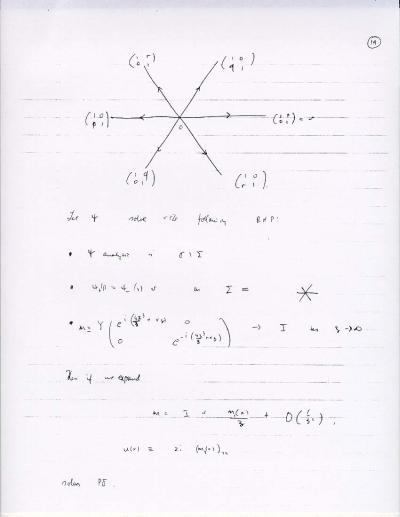 19
( 1 r 0 1 )
( 1 0 q 1 )
( 1 0 p 1 )
0
( 1 p 0 1 ) = v
( 1 q 0 1 )
( 1 0 r 1 )
Let ψ solve the following RHP:
• ψ analytic in ℂ \ Σ
• ψ₊(z) = ψ₋(z) v on Σ =
• m = ψ ( e^{i(4z³/3 + xz)} 0 0 e^{-i(4z³/3 + xz)} ) → I as z → ∞
Then if we expand
m = I + m₁(x)/z + O(1/z²),
u(x) = 2i (m₁(x))₁₂
solves PII.